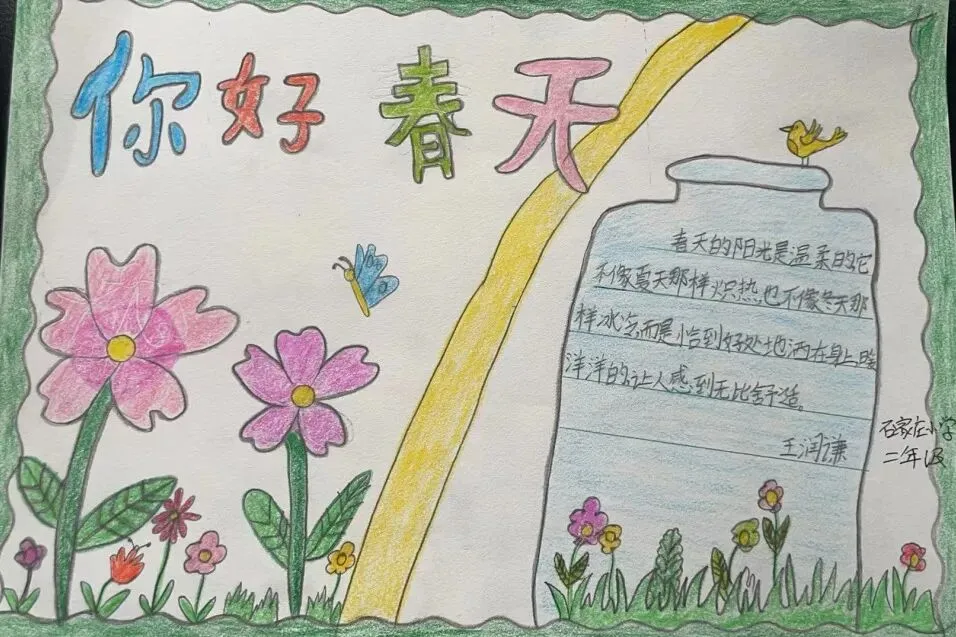 你好 春天
春天的阳光是温柔的它
不像夏天那样炽热也不像冬天那
样冰冷而是恰到好处地洒在身上暖
洋洋的让人感到无比舒适。
王润谦
石家庄小学
二年级